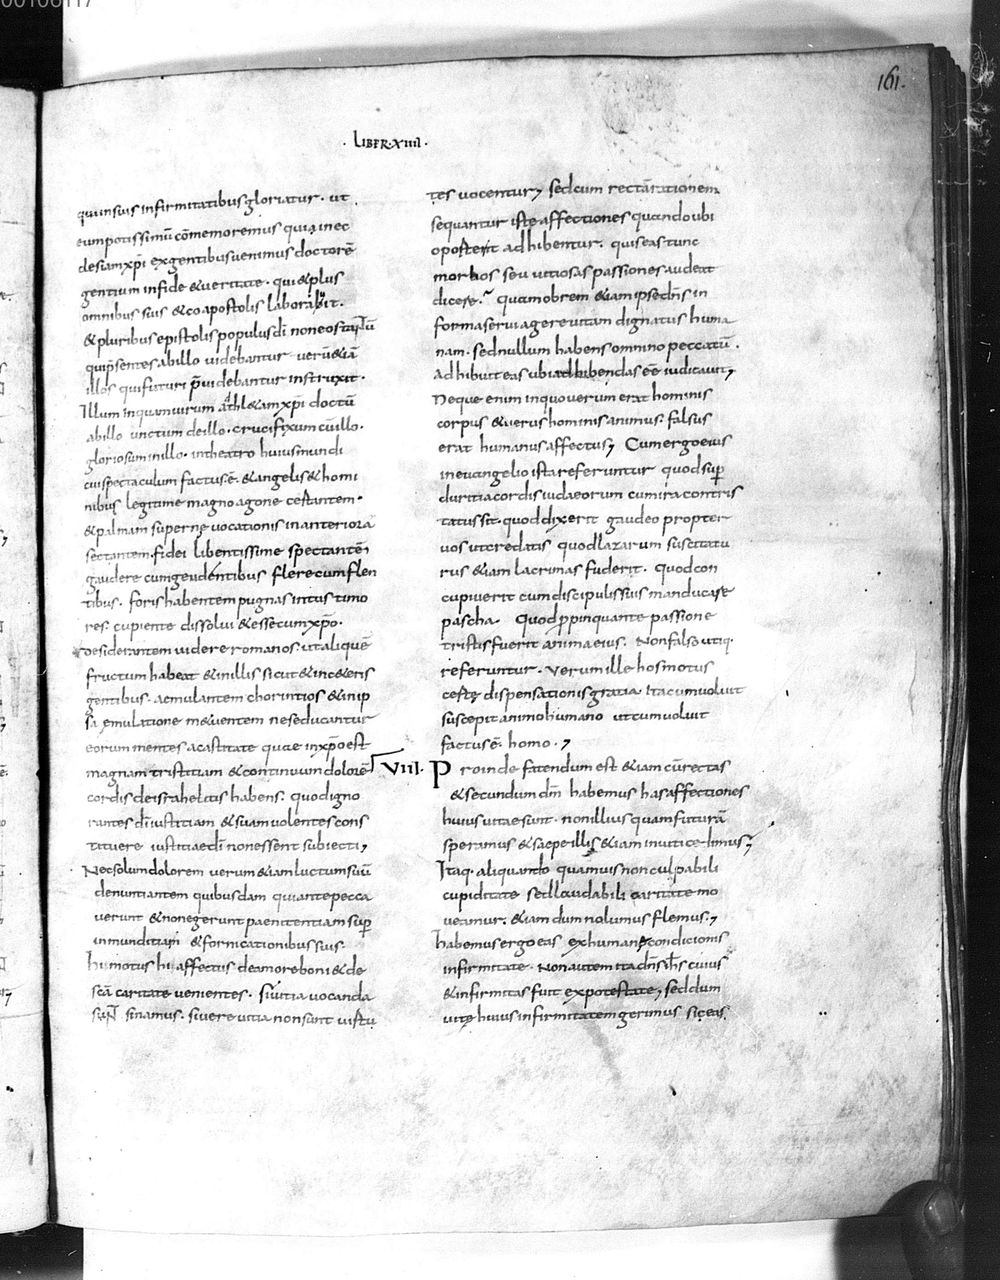 00106117
161.
· LIBER · XIIII ·
qui in suis infirmitatibus gloriatur · ut
eum potissimū cōmemoremus quia in ec
clesiam xp̄i ex gentibus uenimus doctorē
gentium in fide & ueritate · qui & plus
omnibus suis & coapostolis laborauit ·
& pluribus epistolis populus dī non eos tantū
qui p̄sentes ab illo uidebantur uerū & iā
illos qui futuri p̄uidebantur instruxit ·
Illum inquam uirum athl&am xp̄i doctū
ab illo unctum de illo · crucifixum cū illo ·
gloriosum in illo · in theatro huius mundi
cui spectaculum factus ē · & angelis & homi
nibus legitime magno agone certantem ·
& palmam supernę uocationis in anteriora
sectantem · fidei libentissime spectantē
gaudere cum gaudentibus flere cum flen
tibus · foris habentem pugnas intus timo
res · cupiente dissolui & esse cum xp̄o ·
desiderantem uidere romanos · ut aliquē
fructum habeat & in illis sicut & in c&eris
gentibus · aemulantem chorintios & in ip
sa ęmulatione m&uentem ne seducantur
eorum mentes a castitate quae in xp̄o est
magnam tristitiam & continuum dolorē
cordis de israhelitis habens · quod igno
rantes dī iustitiam & suam uolentes cons
tituere iustitiae dī non essent subiecti ;
Nec solum dolorem uerum & iam luctum suū
denuntiantem quibusdam qui ante pecca
uerunt & non egerunt paenitentiam sup̄
inmunditiam & fornicationibus suis ·
hi motus hi affectus de amore boni & de
scā caritate uenientes · si uitia uocanda
sunt sinamus · si uere uitia non sunt uirtu
tes uocentur ; sed cum rectā rationem
sequantur istę affectiones quando ubi
oportet adhibentur · qui seas tunc
morbos seu uitiosas passiones audeat
dicere · quamobrem & iam ipse dn̄s in
forma serui agere uitam dignatus huma
nam · sed nullum habens omnino peccatū ·
adhibuit eas ubi adhibendas eē iudicauit ;
Neque enim in quo uerum erat hominis
corpus & uerus hominis animus · falsus
erat humanus affectus ; Cum ergo eius
in euangelio ista referuntur quod sup̄
duritia cordis iudaeorum cum ira contris
tatus sit · quod dixerit gaudeo propter
uos ut credatis quod lazarum suscitatu
rus & iam lacrimas fuderit · quod con
cupiuerit cum discipulis suis manducare
pascha · Quod p̄pinquante passione
tristis fuerit anima eius · Non falso utiq·
referuntur · Verum ille hos motus
certę dispensationis gratia · Ita cum uoluit
suscepit animo humano ut cum uoluit
factus ē · homo · ;
VIIII · Proinde fatendum est & iam cū rectas
& secundum dm̄ habemus has affectiones
huius uitae sunt · non illius quam futurā
speramus & saepe illis & iam inuiti cedimus ;
Itaq· aliquando quamuis non culpabili
cupiditate sed laudabili caritate mo
ueamur · & iam dum nolumus flemus · ;
habemus ergo eas ex humanę condicionis
infirmitate · Non autem ita dn̄s ih̄s cuius
& infirmitas fuit ex potestate ; sed dum
uitę huius infirmitatem gerimus si eas